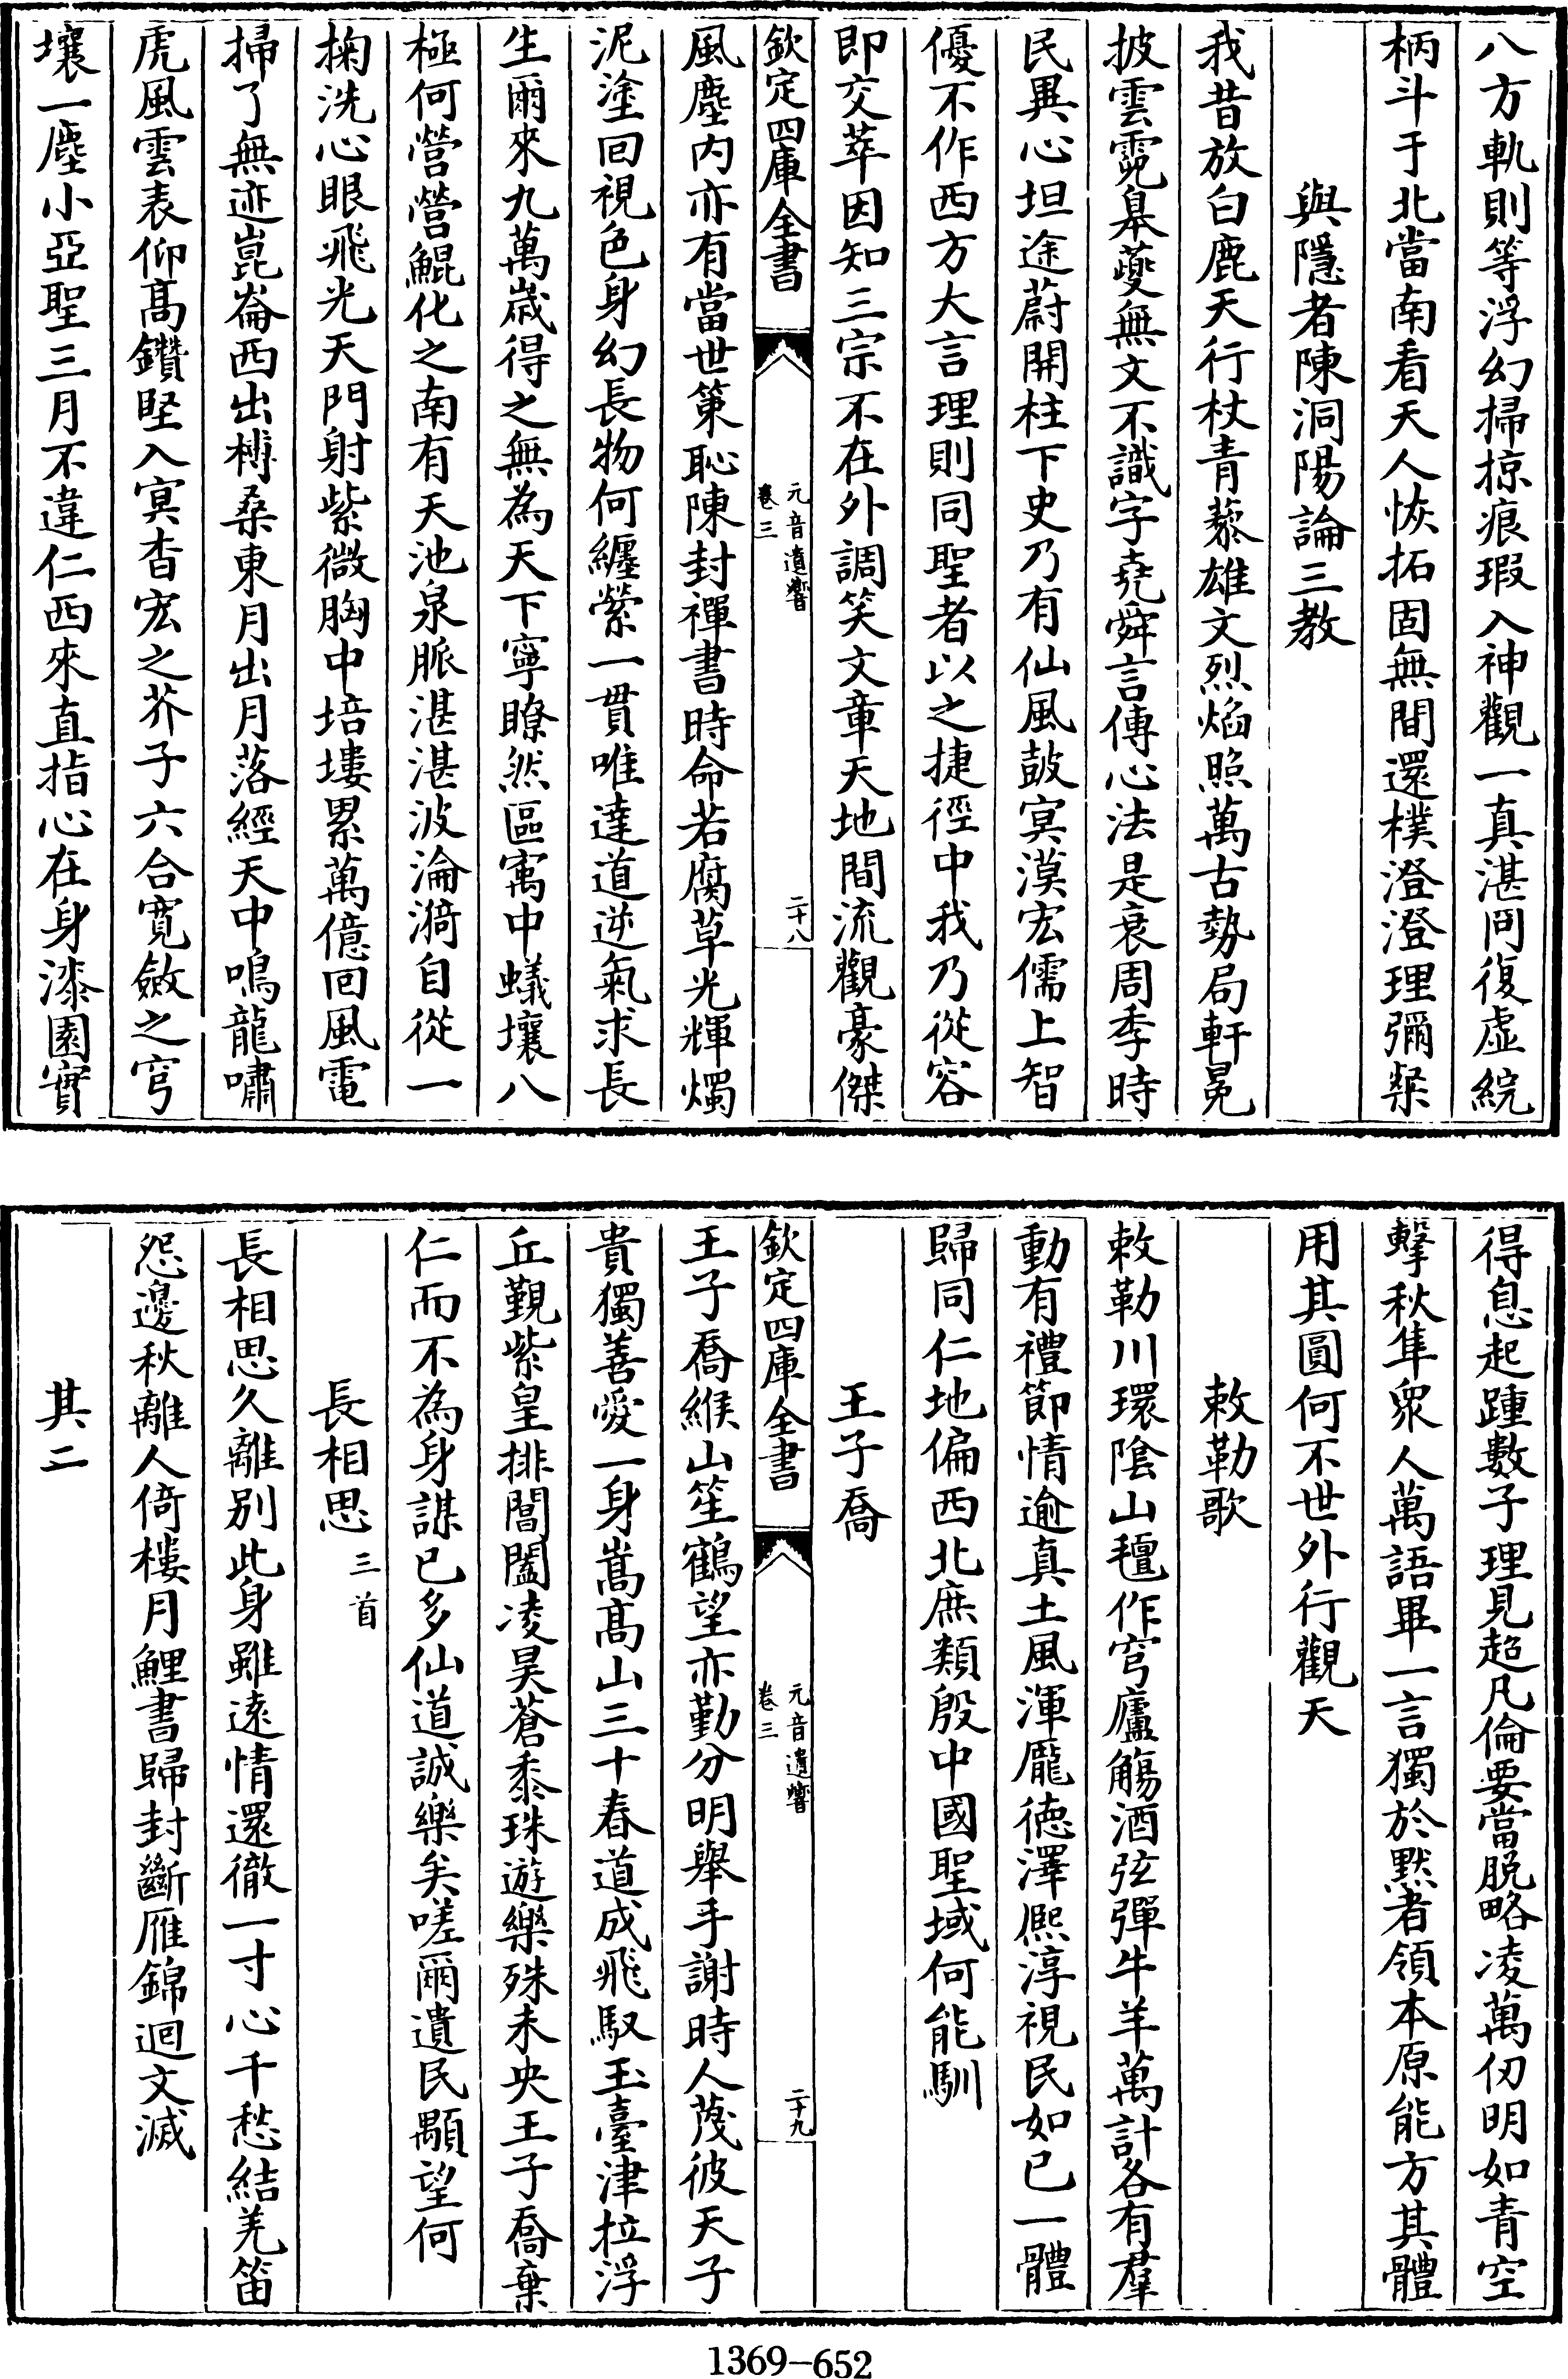 八方軌則等浮幻掃掠痕瑕入神觀一真湛冏復虛綂
柄斗于北當南看天人恢拓固無間還樸澄澄理彌粲
與隱者陳洞陽論三教
我昔放白鹿天行杖青藜雄文烈焰照萬古勢局軒冕
披雲霓臯夔無文不識字堯舜言傳心法是衰周季時
民異心坦途蔚開柱下史乃有仙風鼓㝠漠宏儒上智
優不作西方大言理則同聖者以之捷徑中我乃從容
即交萃因知三宗不在外調笑文章天地間流觀豪傑
欽定四庫全書
元音遺響
卷三
二十八
風塵内亦有當世策恥陳封禪書時命若腐草光輝燭
泥塗回視色身幻長物何纏縈一貫唯達道逆氣求長
生爾來九萬歲得之無為天下寧瞭然區㝢中蟻壤八
極何營營鯤化之南有天池泉脈湛湛波淪漪自從一
掬洗心眼飛光天門射紫微胸中培塿累萬億回風電
掃了無迹崑崙西出榑桑東月出月落經天中鳴龍嘯
虎風雲表仰高鑽堅入㝠杳宏之芥子六合寛斂之穹
壤一塵小亞聖三月不違仁西來直指心在身漆園實
得息起踵數子理見超凡倫要當脱略凌萬仞明如青空
擊秋隼衆人萬語畢一言獨於默者領本原能方其體
用其圓何不世外行觀天
敕勒歌
敕勒川環陰山氊作穹廬觴酒弦彈牛羊萬計各有羣
動有禮節情逾真土風渾厖徳澤熈淳視民如已一體
歸同仁地偏西北庶類殷中國聖域何能馴
王子喬
欽定四庫全書
元音遺響
卷三
二十九
王子喬緱山笙鶴望亦勤分明舉手謝時人蔑彼天子
貴獨善愛一身嵩高山三十春道成飛馭玉臺津拉浮
丘覲紫皇排閶闔凌昊蒼黍珠遊樂殊未央王子喬棄
仁而不為身謀已多仙道誠樂矣嗟爾遺民顒望何
長相思三首
長相思久離别此身雖遠情還徹一寸心千愁結羌笛
怨邊秋離人倚樓月鯉書歸封斷雁錦迴文滅
其二
1369-652